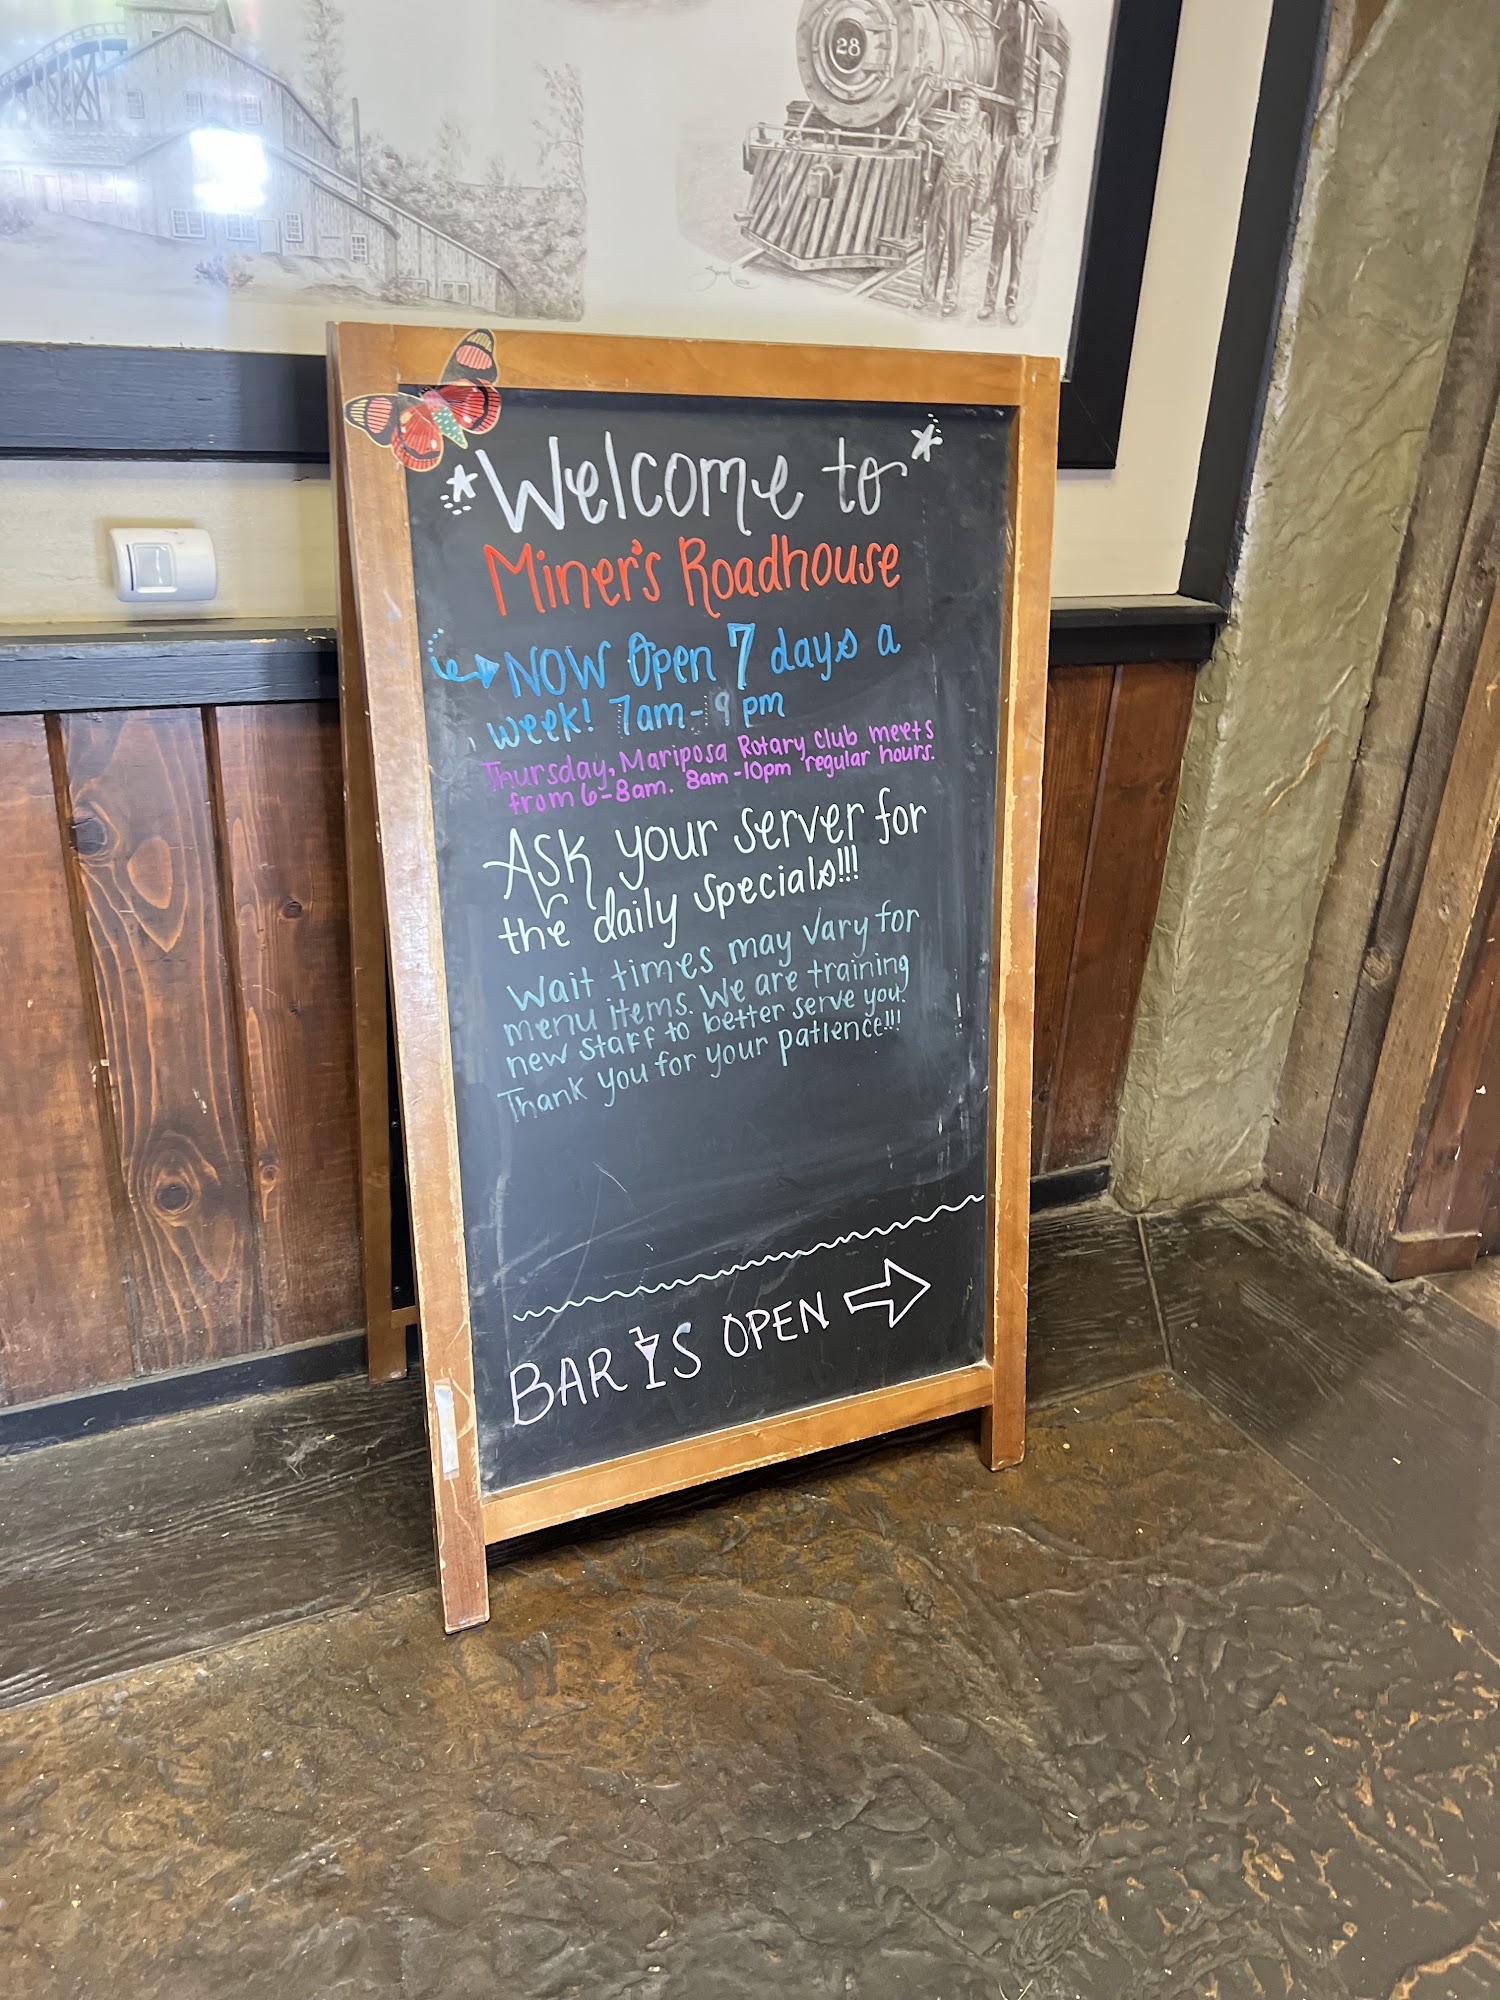 28
Welcome to
Miner's Roadhouse
NOW Open 7 days a
week! 7am-9pm
Thursday, Mariposa Rotary club meets
from 6-8am. 8am-10pm regular hours.
Ask your server for
the daily specials!!!
Wait times may vary for
menu items. We are training
new staff to better serve you.
Thank you for your patience!!!
BAR IS OPEN